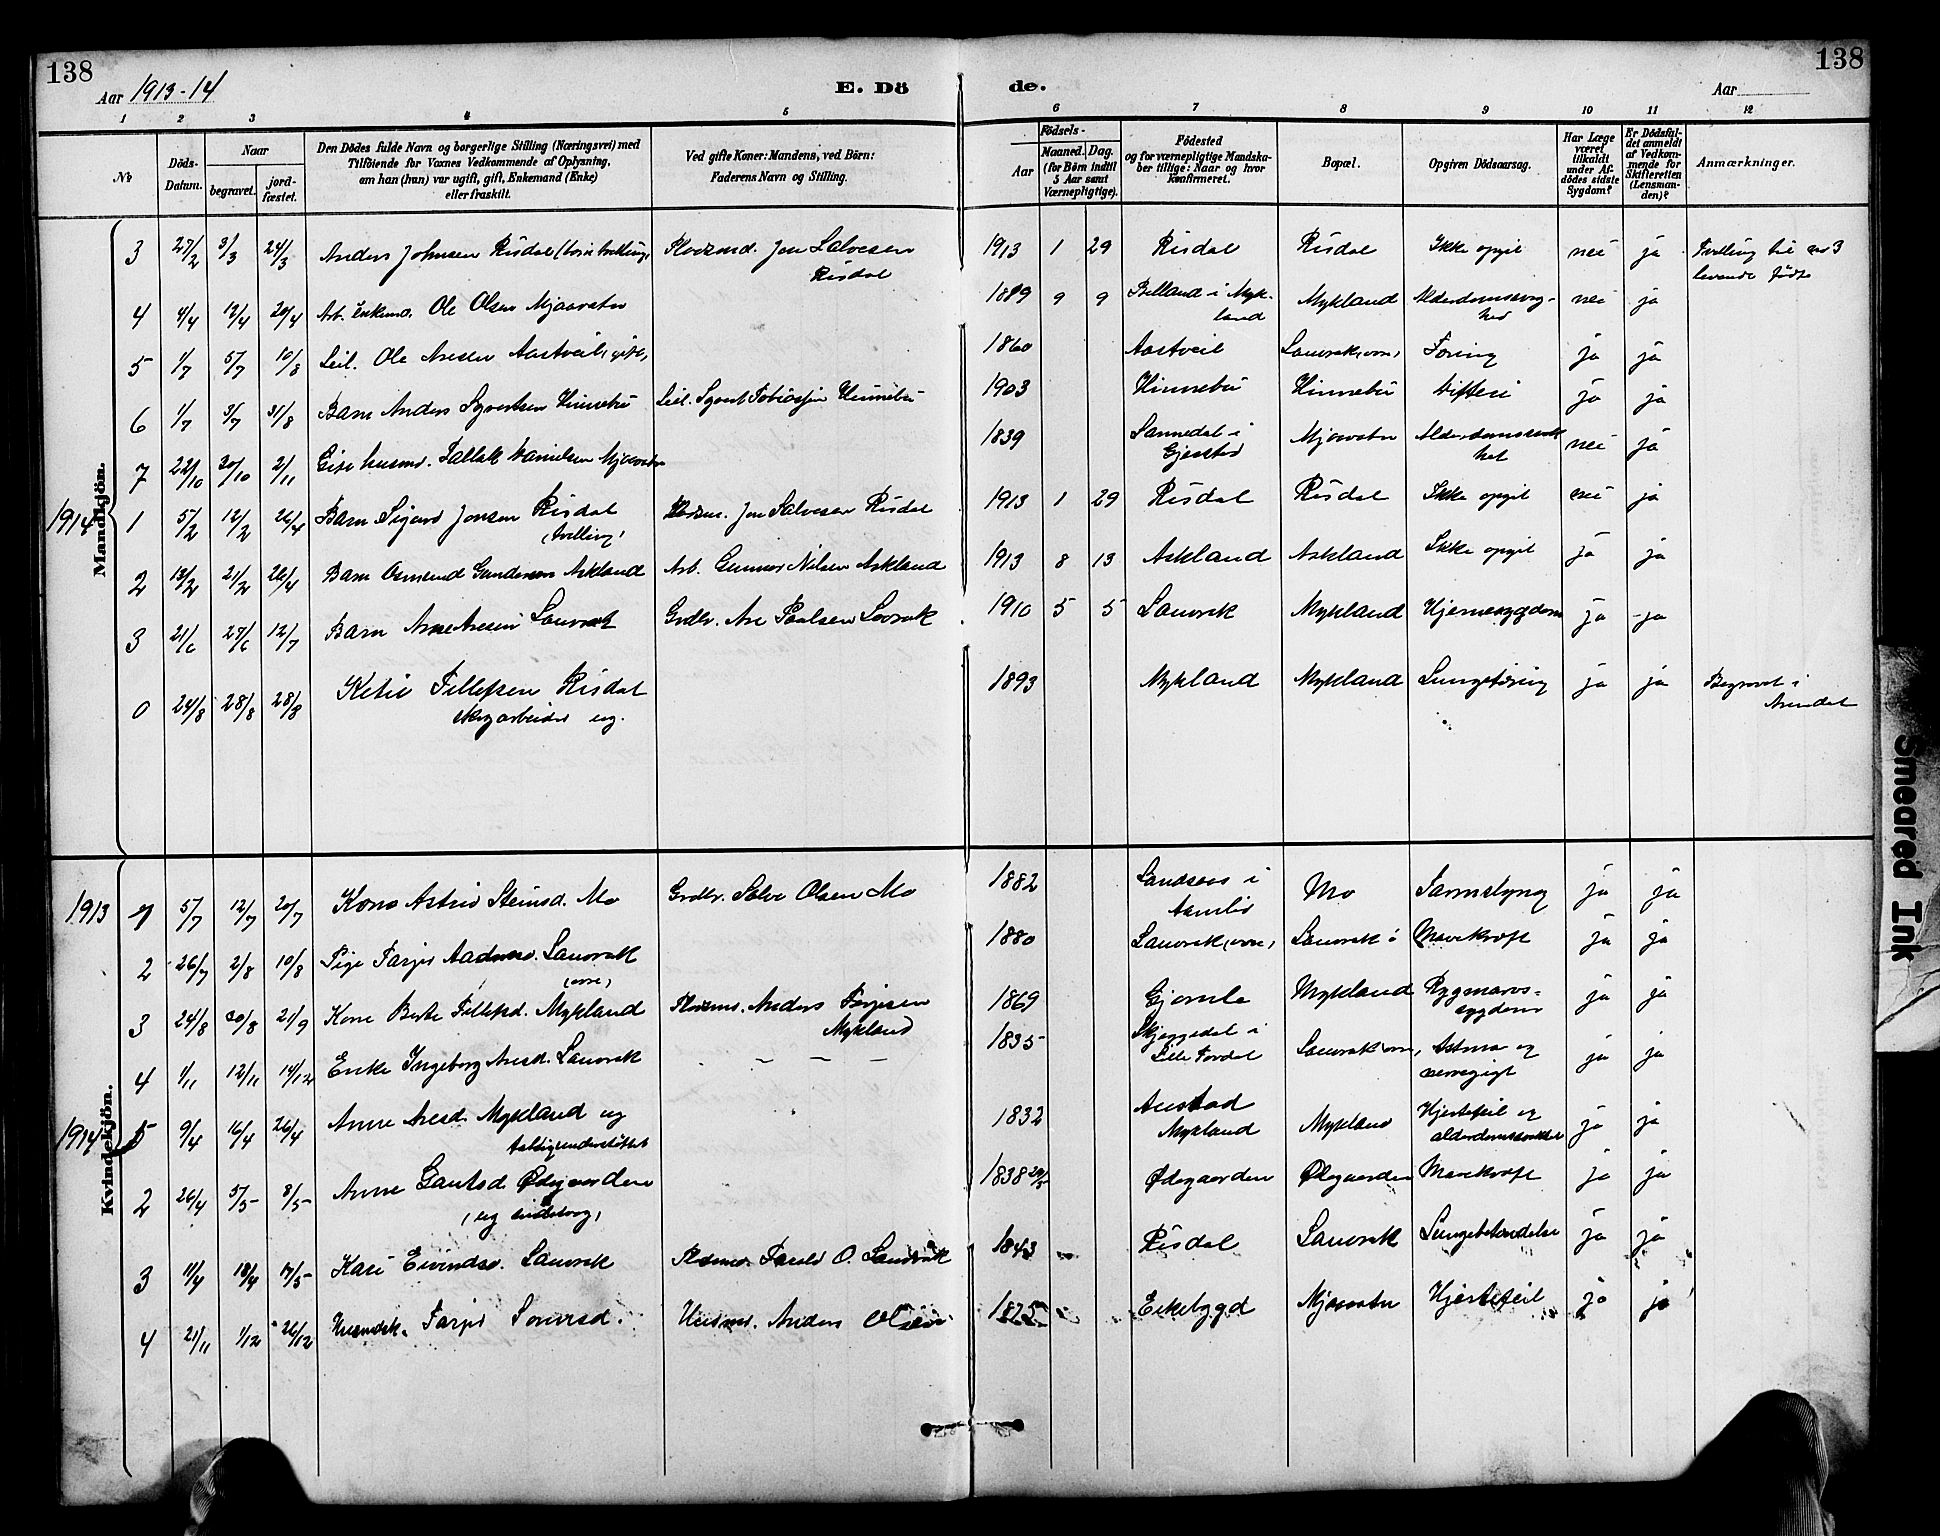 138
138
Aar 1913-14
E. Dö
de.
Aar
1 2 3 4 5 6 7 8 9 10 11 12
№
Döds-Datum.
Naar
begravet.
jordfæstet.
Den Dödes fulde Navn og borgerlige Stilling (Næringsvei) med Tilföiende for Voxnes Vedkommende af Oplysning, om han (hun) var ugift, gift, Enkemand (Enke) eller fraskilt.
Ved gifte Koner: Mandens, ved Börn: Faderens Navn og Stilling.
Födsels-
Aar
Maaned. Dag. (for Börn indtil 5 Aar samt Værnepligtige).
Födested og for værnepligtige Mandskaber tillige: Naar og hvor Konfirmeret.
Bopæl.
Opgiven Dödsaarsag.
Har Læge været tilkaldt under Afdödes sidste Sygdom?
Er Dödsfaldet anmeldt af Vedkommende for Skifteretten (Lensmanden)?
Anmærkninger.
Mandkjön.
3 27/2 3/3 24/3 Anders Johnsen Risdal Jon Salvesen Risdal 1913 1 29 Risdal Risdal Ikke opgit nei ja Tvilling til no 3 levende født
4 4/4 12/4 20/4 Arb. Enkem. Ole Olsen Mjaavatn 9 9 i Mykland Mykland nei ja
5 1/7 5/7 10/8 Leil. Ole Aresen Aastveit, gift, 1860 Aastveit Lauvrak Tæring ja ja
6 1/7 3/7 31/8 Barn Anders Syvertsen Hinnebu Leil. Syvert Tobiassen Hinnebu 1903 Hinnebu Hinnebu Difteri ja ja
7 22/10 30/10 2/11 Gift husmd. Tallak Danielsen Mjaavatn 1839 Sannedal i Gjerstad Mjaavatn nei ja
1914
1 5/2 12/2 26/4 Barn Sigurd Jonsen Risdal (tvilling) Jon Salvesen Risdal 1913 1 29 Risdal Risdal Ikke opgit nei ja
2 13/2 21/2 26/4 Barn Osmund Gundersen Askland Arb. Gunnar Nilsen Askland 1913 8 13 Askland Askland Ikke opgit ja ja
3 21/6 27/6 12/7 Barn Arne Aresen Lauvrak Grdbr. Are Paalsen Lovrak 1910 5 5 Lauvrak Mykland Hjernesygdom ja ja
0 24/8 28/8 28/8 Ketil Tellefsen Risdal skogarbeider ug. 1893 Mykland Mykland Lungetæring ja ja Begravet i Arendal
Kvindekjön.
1913
1 5/7 12/7 20/7 Kone Astrid Steinsd. Mo Grdbr. Salve Olsen Mo 1882 i Aamlid Mo ja ja
2 26/7 2/8 10/8 Pige Tarjer Aadnesd. Lauvrak 1880 Lauvrak Lauvrak Mavekræft ja ja
3 24/8 30/8 21/9 Kone Berte Tellefsd. Mykland Anders Terjesen Mykland 1869 Gjømle Mykland Rygmarvs-sygdom ja ja
4 1/11 12/11 14/12 Enke Ingeborg Aresd. Lauvrak – – – 1835 Skjeggedal i Lauvrak Astma og nervegigt ja ja
1914
5 9/4 16/4 26/4 Anne Aresd. Mykland ug fattigunderstøttet 1832 Austad Mykland Mykland Hjertefeil og ja ja
2 26/4 5/5 8/5 Anne Gautsd. Ødegaarden 1838 Ødegaarden Ødegaarden Mavekræft ja ja
3 11/4 18/4 17/5 Kari Eivindsd. Lauvrak O. Lauvrak 1843 Risdal Lauvrak Lungebetændelse ja ja
4 21/11 1/12 26/12 Tarjer Husmd. Anders Olsen 1825 Eikebygd Mjaavatn Hjertefeil ja ja
Smeared Ink